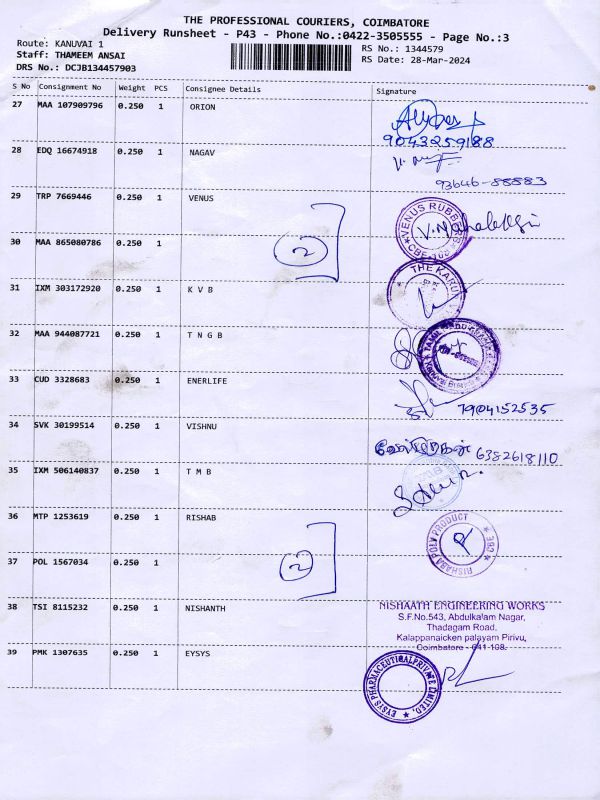 THE PROFESSIONAL COURIERS, COIMBATORE
Delivery Runsheet - P43 - Phone No.:0422-3505555 - Page No.:3
Route: KANUVAI 1
RS No.: 1344579
Staff: THAMEEM ANSAI
RS Date: 28-Mar-2024
DRS No.: DCJB134457903
S No Consignment No Weight PCS Consignee Details Signature
27 MAA 107909796 0.250 1 ORION
9043259188
28 EDQ 16674918 0.250 1 NAGAV
93646-88883
29 TRP 7669446 0.250 1 VENUS
VENUS RUBBERS
30 MAA 865080786 0.250 1
2
31 IXM 303172920 0.250 1 K V B
THE KARUR
32 MAA 944087721 0.250 1 T N G B
33 CUD 3328683 0.250 1 ENERLIFE
7904152535
34 SVK 30199514 0.250 1 VISHNU
6382618110
35 IXM 506140837 0.250 1 T M B
36 MTP 1253619 0.250 1 RISHAB
RISHABA POLY PRODUCT CBE
37 POL 1567034 0.250 1
2
38 TSI 8115232 0.250 1 NISHANTH
NISHAATH ENGINEERING WORKS
S.F.No.543, Abdulkalam Nagar,
Thadagam Road,
Kalappanaicken palayam Pirivu,
Coimbatore - 641-108.
39 PMK 1307635 0.250 1 EYSYS
EYSYS PHARMACEUTICAL PRIVATE LIMITED.